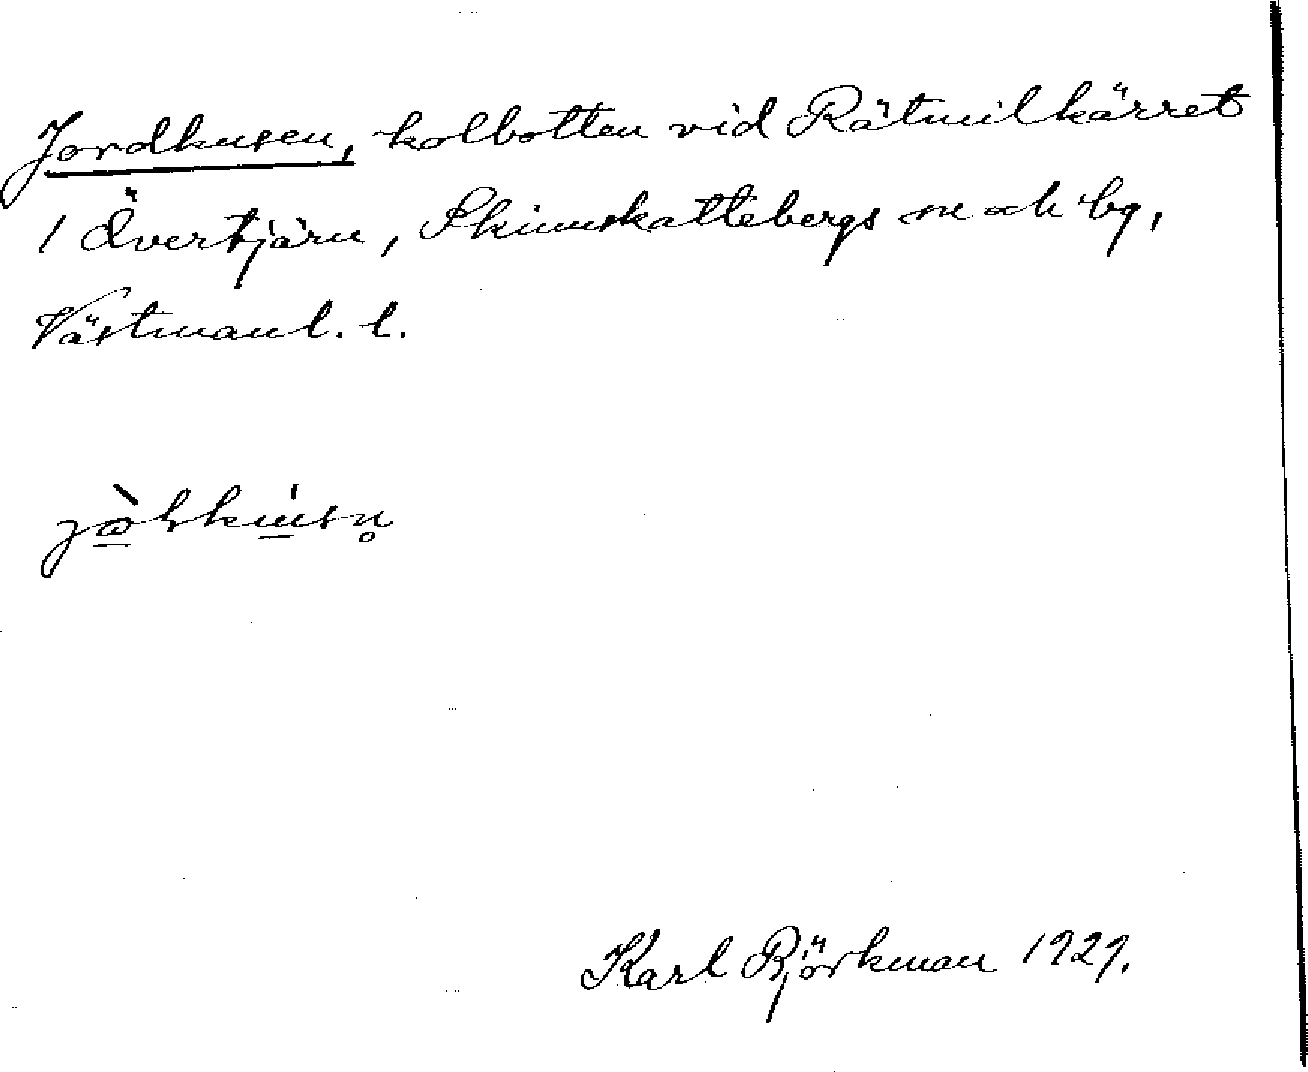 Jordkusen, kolbotten vid Rätmilkärret
i Övertjärn, Skinnskattebergs sn och bg,
Västmanl. l.
Karl Björkman 1929.